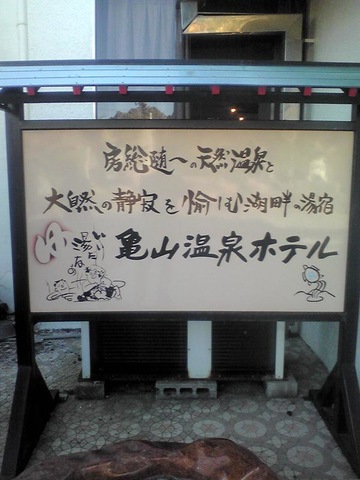 房総随一の天然温泉と
大自然の静寂を愉しむ湖畔の湯宿
亀山温泉ホテル
ゆ
いい湯だなぁ